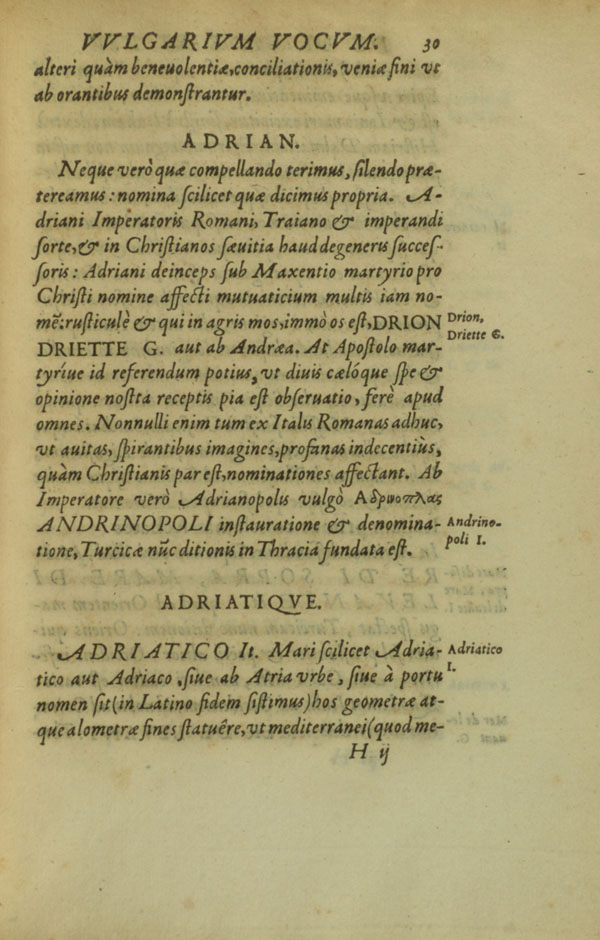 VVLGARIVM VOCVM. 30
alteri quàm beneuolentiæ, conciliationis, veniæ fini vt
ab orantibus demonſtrantur.
ADRIAN.
Neque verò quæ compellando terimus, ſilendo præ-
tereamus: nomina ſcilicet quæ dicimus propria. A-
driani Imperatoris Romani, Traiano & imperandi
ſorte, & in Chriſtianos ſæuitia haud degeneris ſucceſ-
ſoris: Adriani deinceps ſub Maxentio martyrio pro
Chriſti nomine affecti mutuaticium multis iam no-
mē: ruſticulè & qui in agris mos, immò os eſt, DRION
Drion,
DRIETTE G. aut ab Andræa. At Apoſtolo mar-
Driette G.
tyríue id referendum potius, vt diuis cælóque ſpe &
opinione noſtta receptis pia eſt obſeruatio, ferè apud
omnes. Nonnulli enim tum ex Italis Romanas adhuc,
vt auitas, ſpirantibus imagines, profanas indecentiùs,
quàm Chriſtianis par eſt, nominationes affectant. Ab
Imperatore verò Adrianopolis vulgò Αδρινοπλας
ANDRINOPOLI inſtauratione & denomina-
Andrino-
tione, Turcicæ nūc ditionis in Thracia fundata eſt.
poli I.
ADRIATIQVE.
ADRIATICO It. Mari ſcilicet Adria-
Adriatico
tico aut Adriaco, ſiue ab Atria vrbe, ſiue à portu
I.
nomen ſit (in Latino fidem ſiſtimus) hos geometræ at-
que alometræ fines ſtatuêre, vt mediterranei (quod me-
H ij